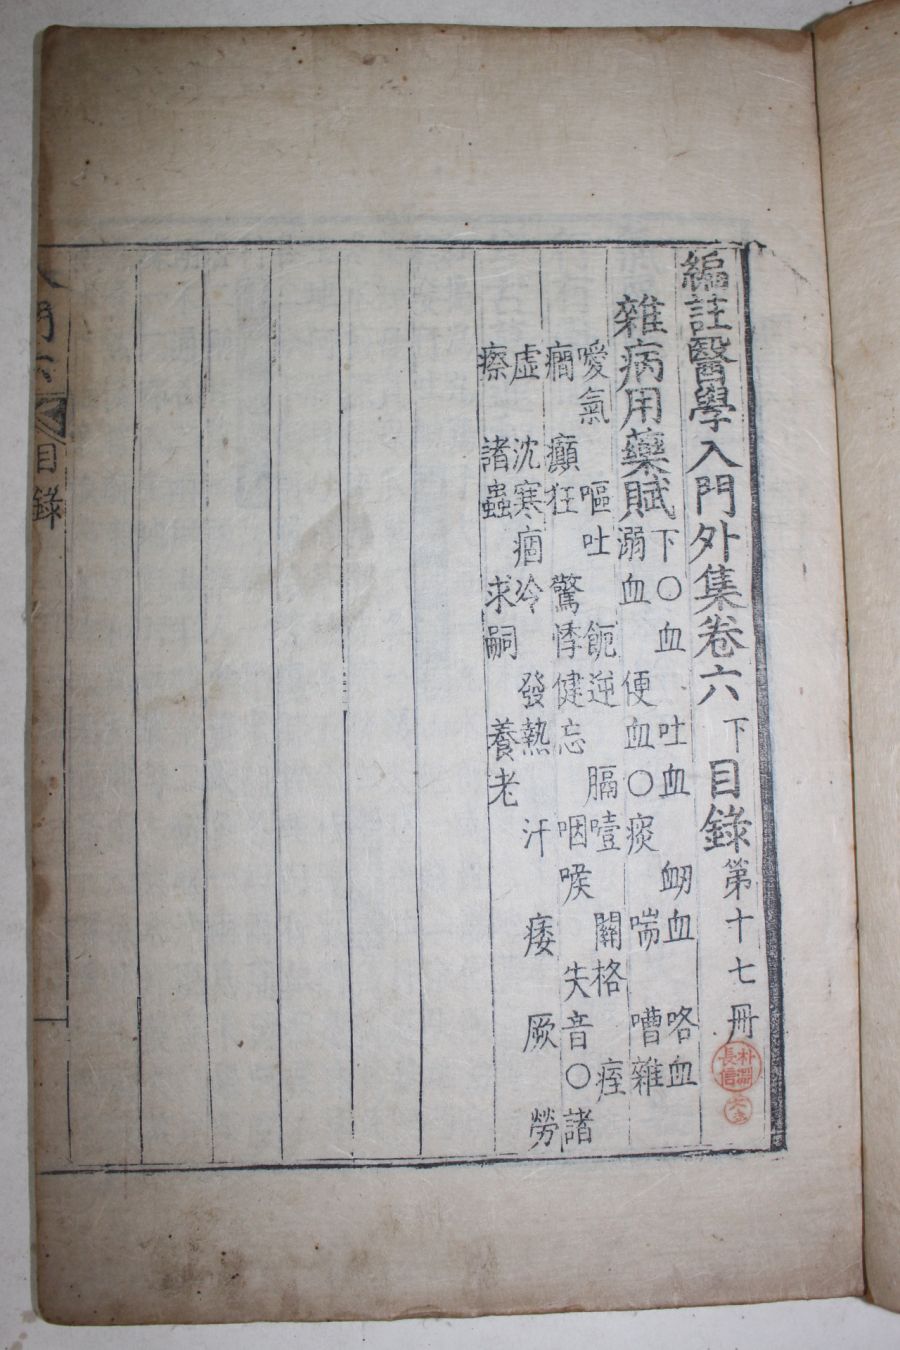 編註醫學入門外集卷六 下 目錄 第十七冊
雜病用藥賦
下〇血 吐血 衂血 咯血
溺血 便血〇痰 喘 嘈雜
噯氣 嘔吐 䭇逆 膈噎 關格 痓
癎 癲狂 驚悸健忘 咽喉 失音〇諸
虛 沈寒痼冷 發熱 汗 痿 厥 勞
瘵 諸蟲 求嗣 養老
門六 目錄
一